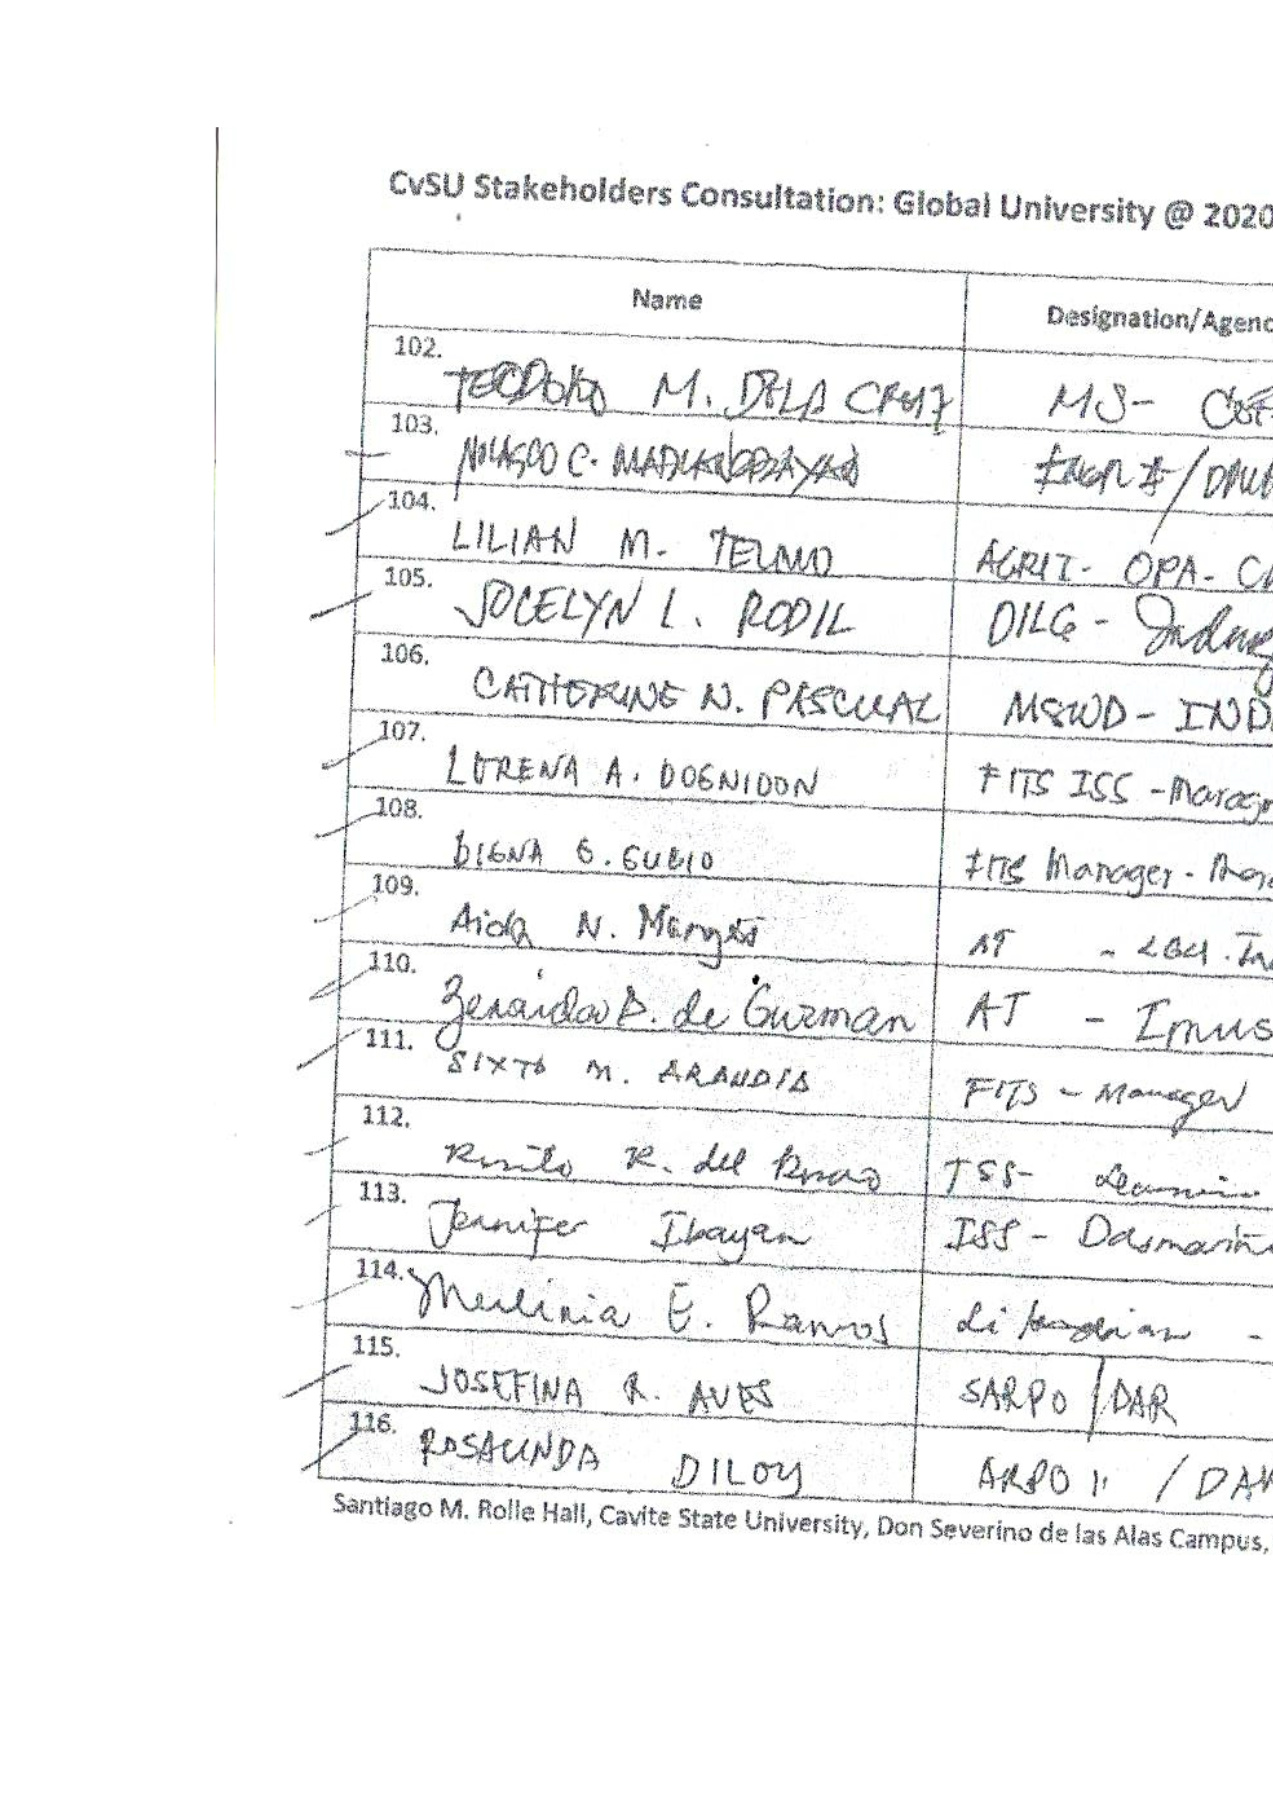 CvSU Stakeholders Consultation: Global University @ 2020
Name
Designation/Agenc
102.
TEODORO M. DELA CRUZ
MS-
103.
NOLASCO C.
ENGR II /
104.
LILIAN M. TELMO
AGRIT- OPA-
105.
JOCELYN L. RODIL
DILG - Indang
106.
CATHERINE N. PASCUAL
MSWD - IND
107.
LORENA A. DOGNIDON
FITS ISS - Marag
108.
DIGNA G. GUBIO
FITS Manager -
109.
Aida N.
AT - LGU.
110.
Zenaida B. de Guzman
AT - Imus
111.
SIXTO M. ARANDIA
FITS - Manager
112.
R. del
TSS-
113.
Jennifer Ibayan
ISS - Dasmariñ
114.
E. Ramos
Librarian -
115.
JOSEFINA R. AVES
SARPO / DAR
116.
ROSALINDA DILOY
ARPO II / DAR
Santiago M. Rolle Hall, Cavite State University, Don Severino de las Alas Campus,